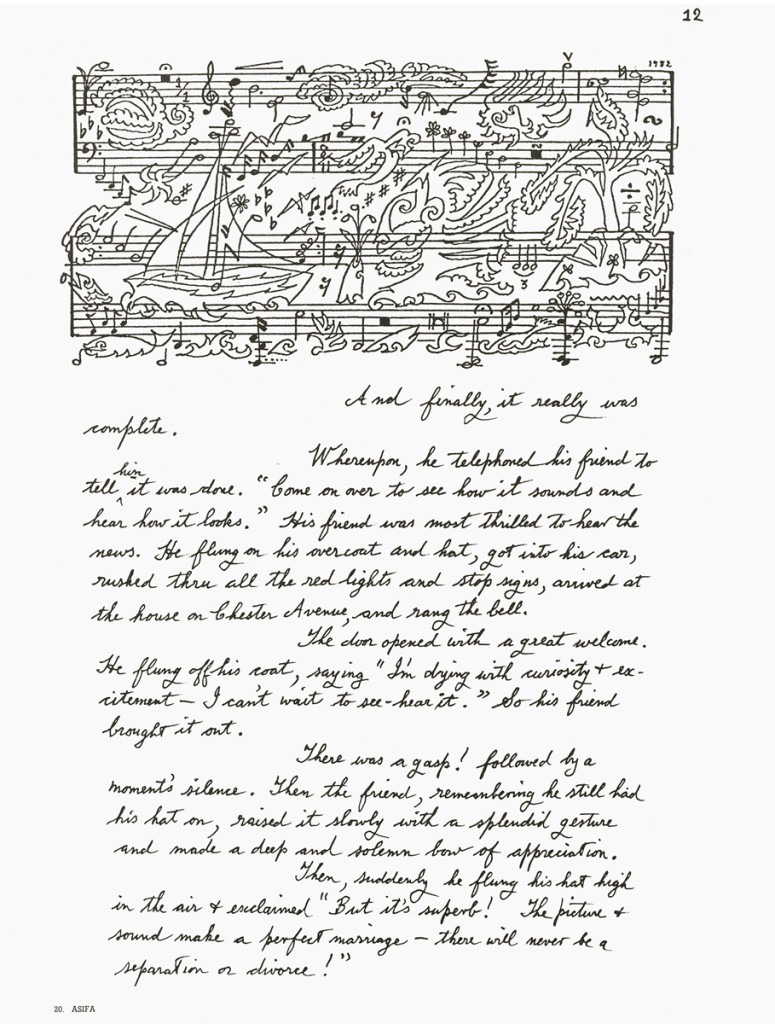 12
1982
3
And finally, it really was
complete.
Whereupon, he telephoned his friend to
him
tell ^ it was done. "Come on over to see how it sounds and
hear how it looks." His friend was most thrilled to hear the
news. He flung on his overcoat and hat, got into his car,
rushed thru all the red lights and stop signs, arrived at
the house on Chester Avenue, and rang the bell.
The door opened with a great welcome.
He flung off his coat, saying "I'm dying with curiosity + ex-
citement – I can't wait to see-hear it." So his friend
brought it out.
There was a gasp! followed by a
moment's silence. Then the friend, remembering he still had
his hat on, raised it slowly with a splendid gesture
and made a deep and solemn bow of appreciation.
Then, suddenly he flung his hat high
in the air + exclaimed "But it's superb! The picture +
sound make a perfect marriage – there will never be a
separation or divorce!"
20. ASIFA